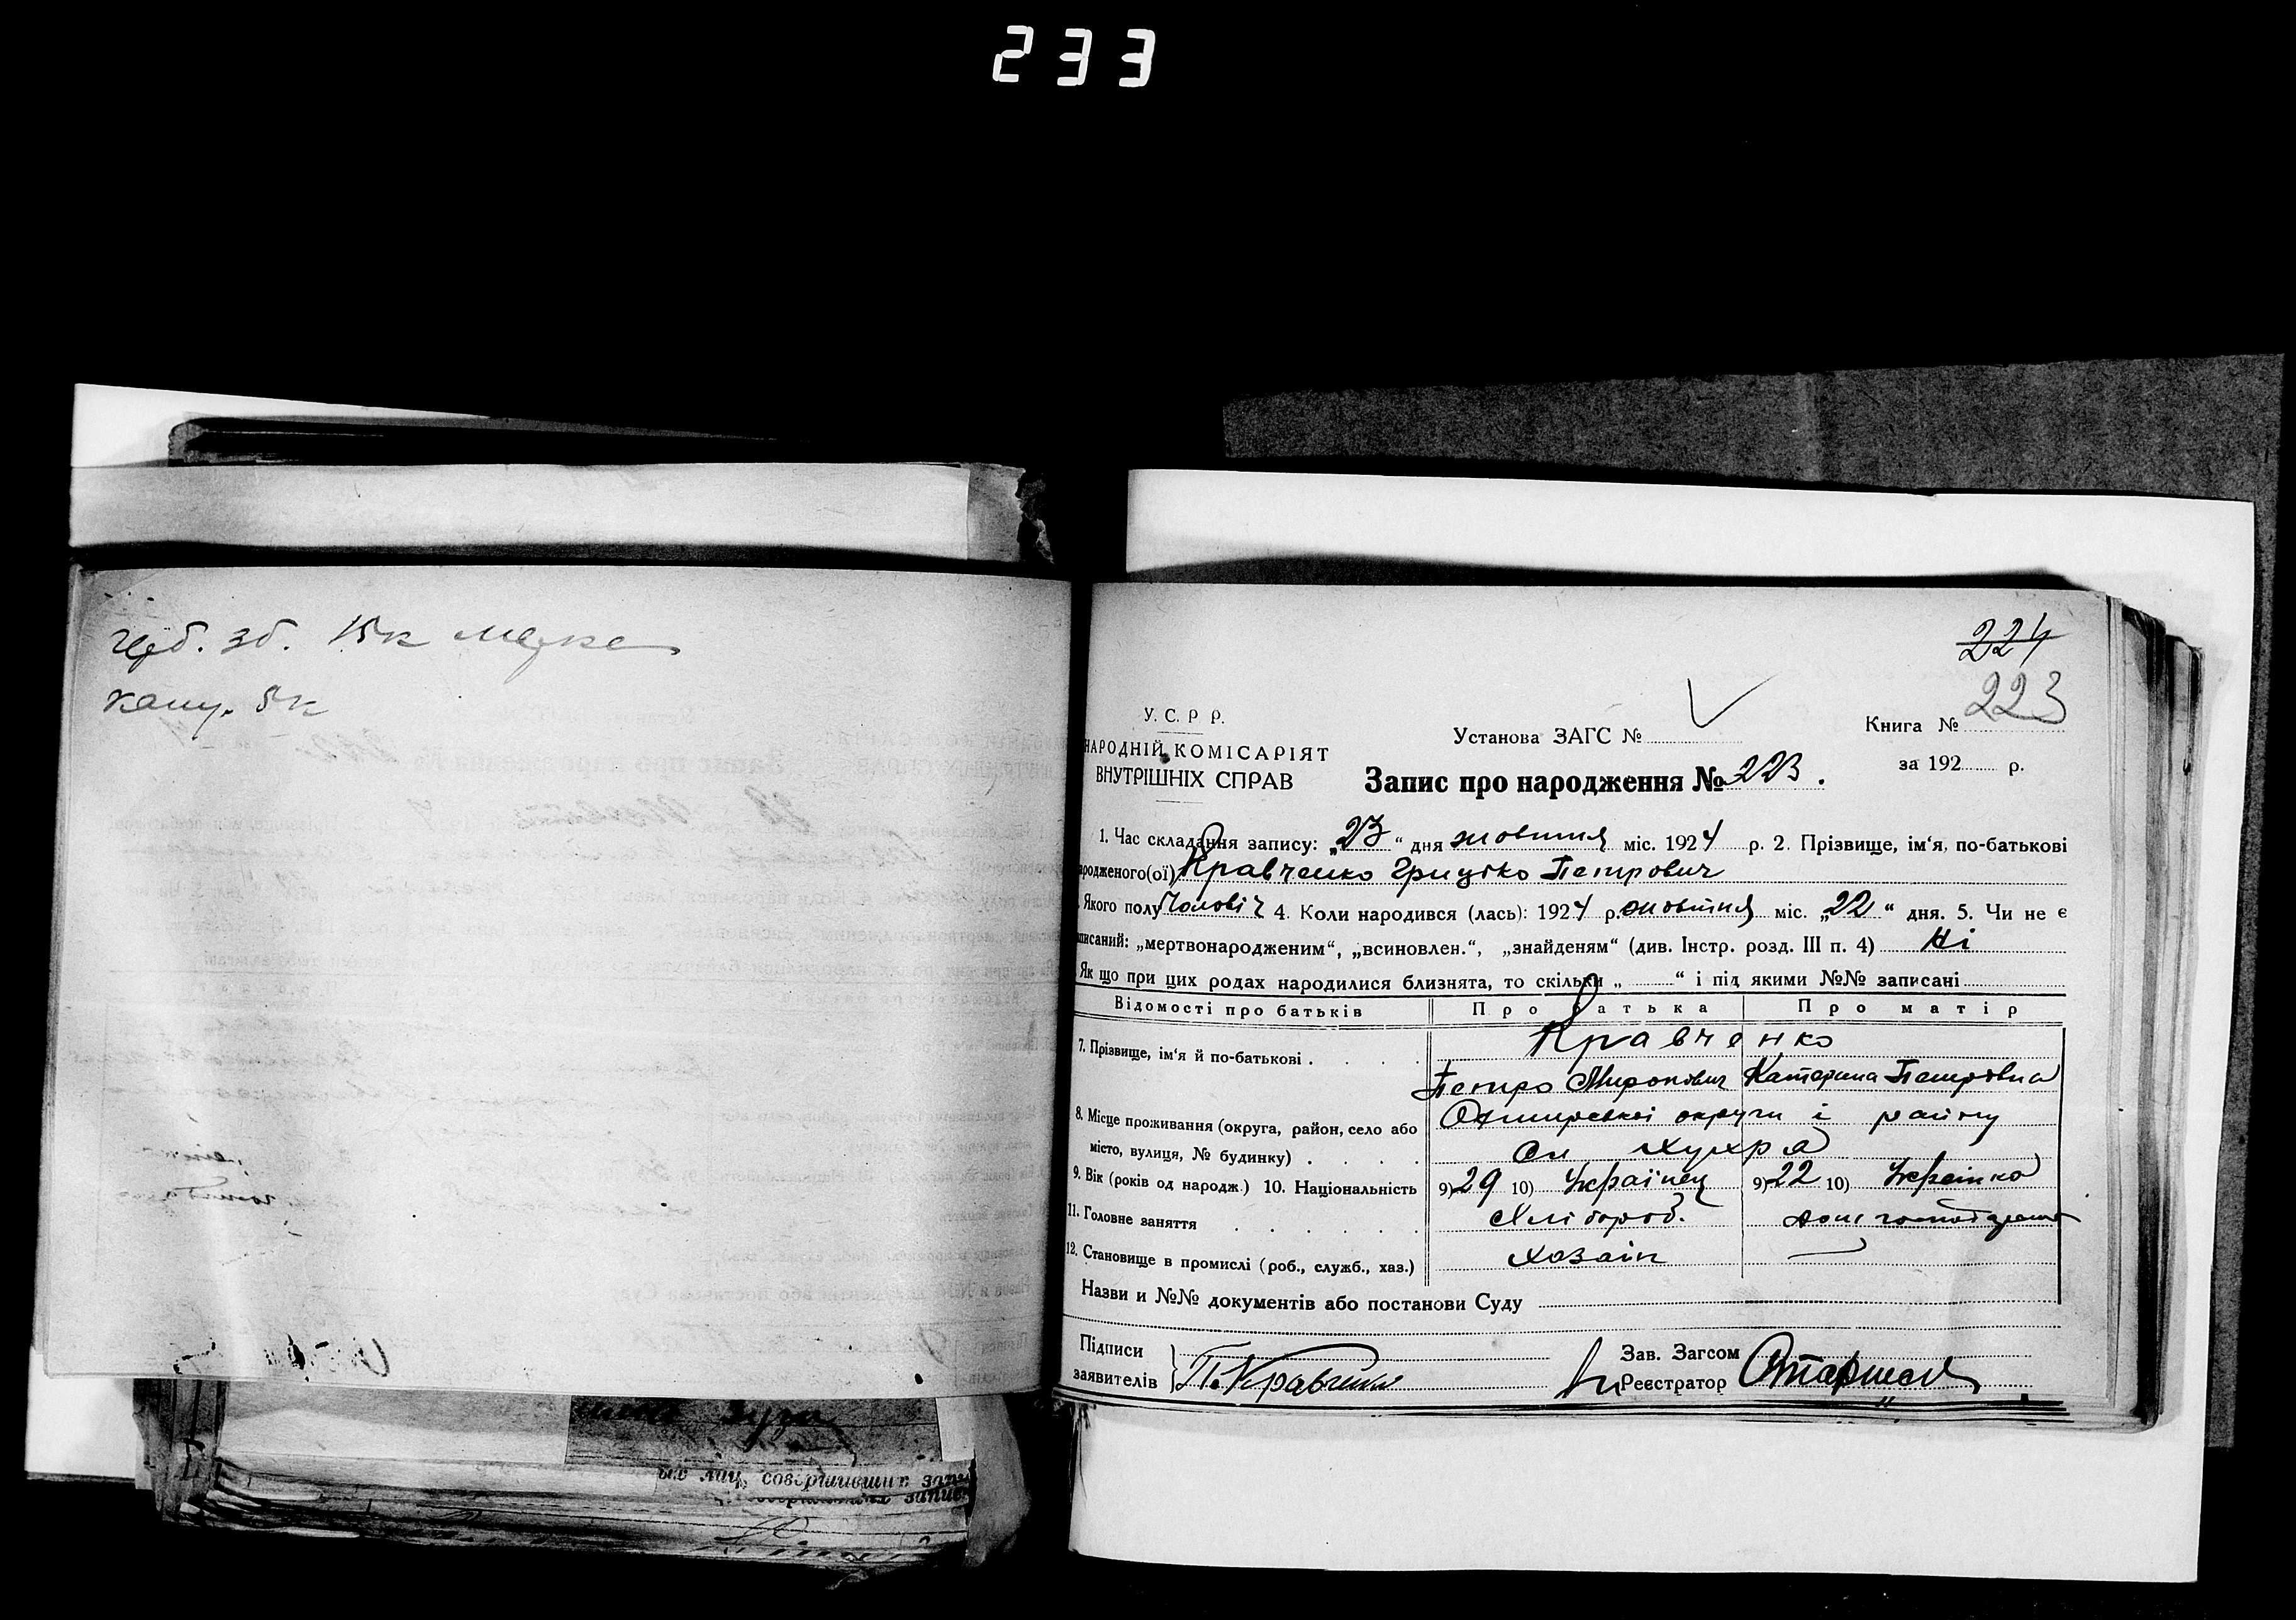 233
герб. зб. 15к марка
канц. 5к
224
223
У. С. Р Р.
НАРОДНІЙ КОМІСАРІЯТ
ВНУТРІШНІХ СПРАВ
Установа ЗАГС №
Книга №
за 192 р.
Запис про народження № 223.
1. Час складання запису: „23“ дня жовтня міс. 1924 р. 2. Прізвище, ім‘я, по-батькові
народженого(ої) Кравченко Грицько Петрович
Якого полу Чоловіч 4. Коли народився (лась): 1924 р. жовтня міс. „22“ дня. 5. Чи не є
записаний: „мертвонародженим“, „всиновлен.“, „знайденям“ (див. Інстр. розд. III п. 4) Ні
Як що при цих родах народилися близнята, то скільки „ “ і під якими №№ записані
Відомості про батьків Про батька Про матір
7. Прізвище, ім‘я й по-батькові . . . . Кравченко
Петро Миронович Катерина Петровна
8. Місце проживання (округа, район, село або Охтирської округи і району
місто, вулиця, № будинку) . . . . сл Хухра
9. Вік (років од народж.) 10. Національність 9) 29 10) Українец 9) 22 10) Українка
11. Головне заняття . . . . Хлібороб.
12. Становище в промислі (роб., служб., хаз.) хозаін —
Назви и №№ документів або постанови Суду
Підписи
заявителів П. Кравченко
Зав. Загсом
Реєстратор
их лиц, совершивших запи